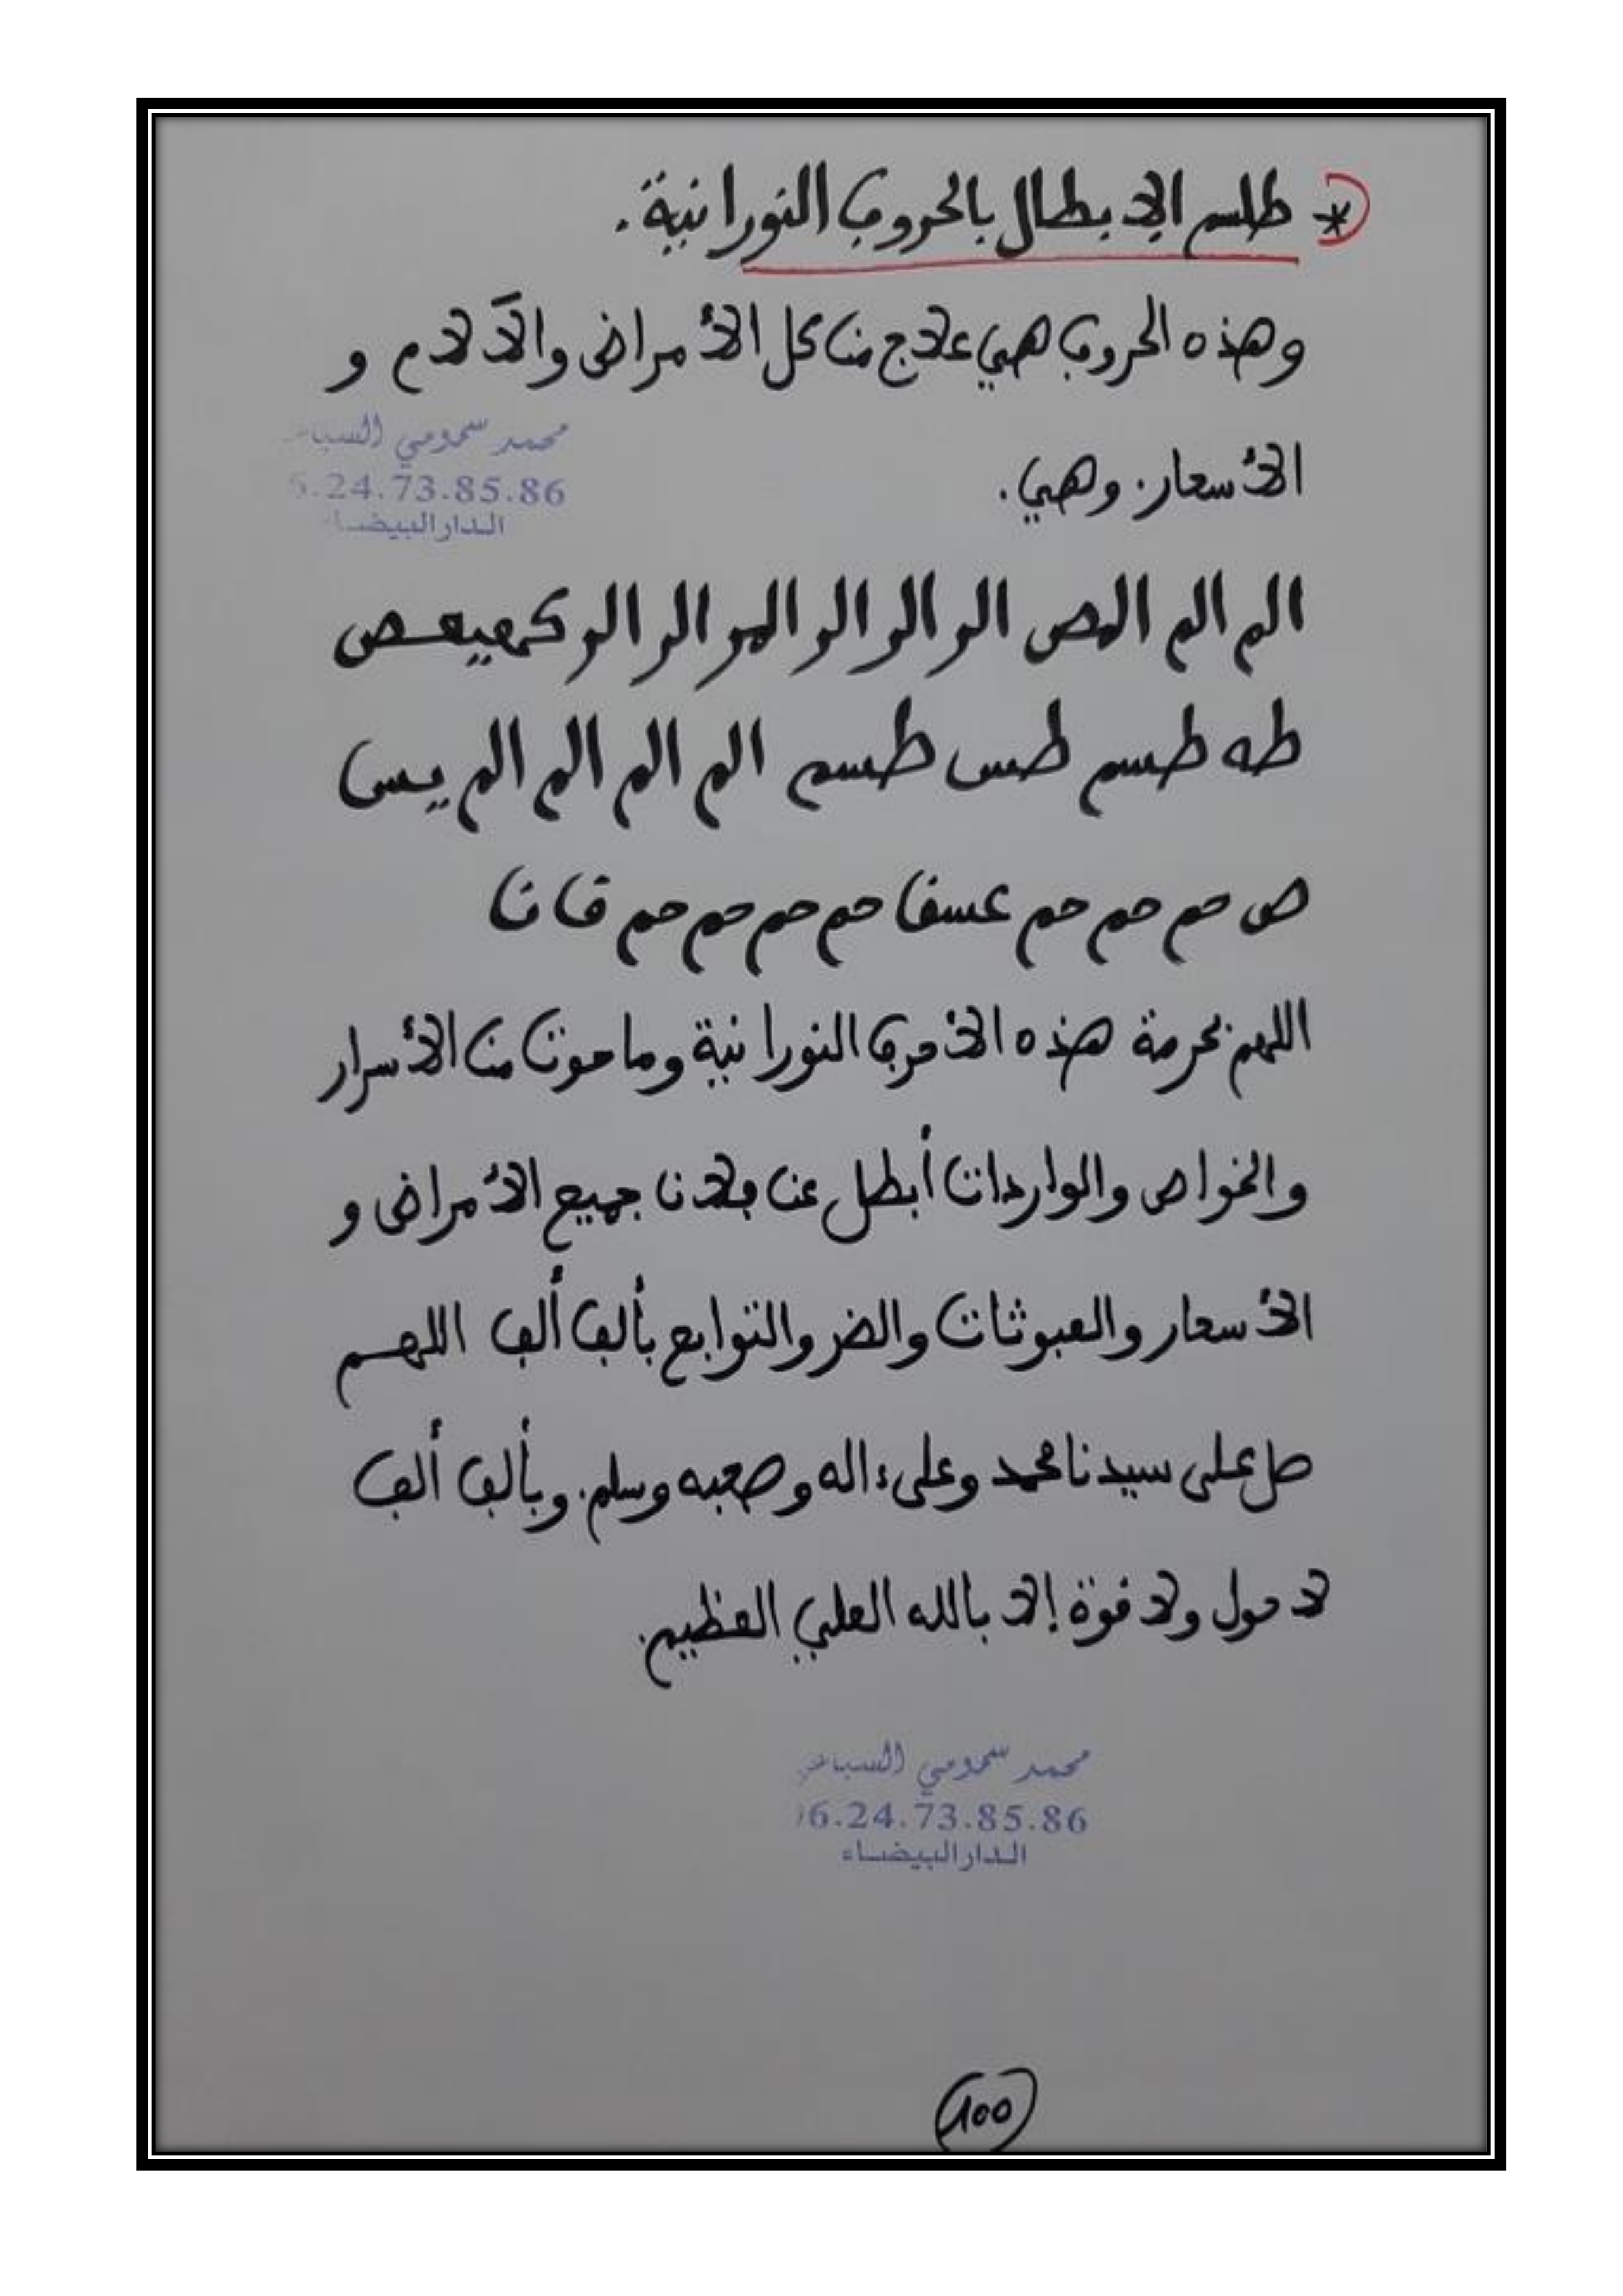 * طلسم الإبطال بالحروف النورانية.
وهذه الحروف هي علاج من كل الأمراض والآلام و
محمد سحومي
5.24.73.85.86
الدار البيضاء
الأسحار. وهي.
الم الم المص الر الر الر المر الر الر كهيعص
طه طسم طس طسم الم الم الم الم يس
ص حم حم حم عسق حم حم حم حم ق ن
اللهم بحرمة هذه الأحرف النورانية وما حوت من الأسرار
والخواص والواردات أبطل عن فلان جميع الأمراض و
الأسحار والعبوثات والضر والتوابع بألف ألف اللهم
صل على سيدنا محمد وعلى ءاله وصحبه وسلم. وبألف ألف
لا حول ولا قوة إلا بالله العلي العظيم.
محمد سحومي
6.24.73.85.86
الدار البيضاء
100